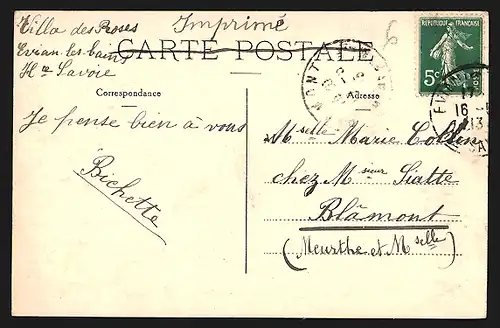 Villa des Roses
Evian-les-bains
Hte Savoie
Imprimé
6
CARTE POSTALE
RÉPUBLIQUE FRANÇAISE
5c
Correspondance
Adresse
Je pense bien à vous
Bichette
Mselle Marie
chez Msieur Siatte
Blâmont
(Meurthe et Mselle)
EVIAN
16
13